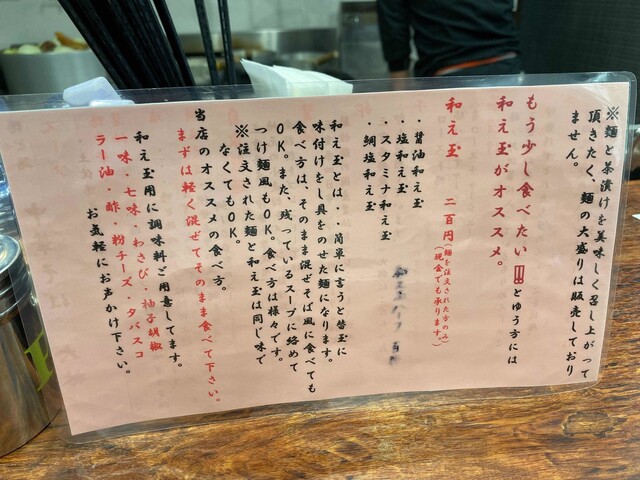 ※麺と茶漬けを美味しく召し上がって
頂きたく、麺の大盛りは販売しており
ません。
もう少し食べたい!!!とゆう方には
和え玉がオススメ。
和え玉 二百円(麺を注文された方のみ)
(現金でも承ります。)
・醤油和え玉
・塩和え玉
・スタミナ和え玉
・鯛塩和え玉
和え玉とは・・簡単に言うと替玉に
味付けをし具をのせた麺になります。
食べ方は、そのまま混ぜそば風に食べても
OK。また、残っているスープに絡めて
つけ麺風もOK。食べ方は様々です。
※注文された麺と和え玉は同じ味で
なくてもOK。
当店のオススメの食べ方。
まずは軽く混ぜてそのまま食べて下さい。
和え玉用に調味料ご用意してます。
一味・七味・わさび・柚子胡椒
ラー油・酢・粉チーズ・タバスコ
お気軽にお声かけ下さい。